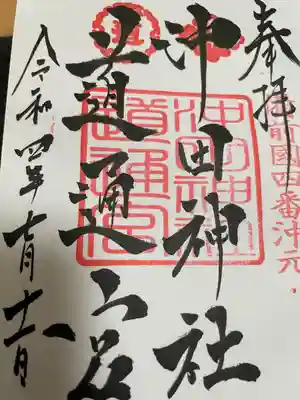 奉拝
前國四番沖元
沖田神社
道通宮
令和四年七月十六日
沖田神社
道通宮